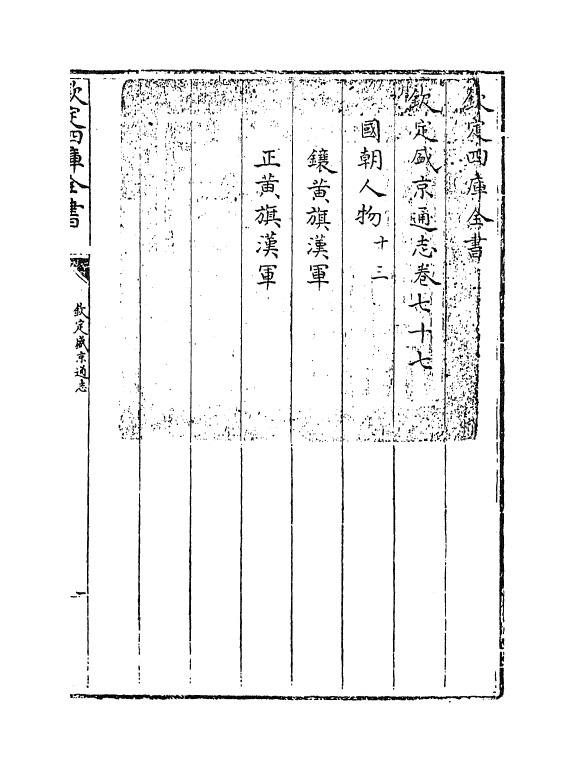 欽定四庫全書
欽定盛京通志卷七十七
國朝人物十三
鑲黃旗漢軍
正黃旗漢軍
欽定四庫全書
欽定盛京通志
一